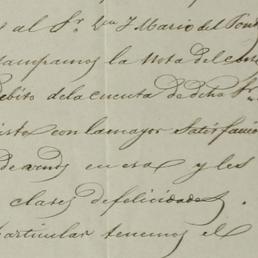 al Sr. Dn. J Mario del Pont
stampamos la Nota del
Debito de la cuenta de dcho Sr
visto con la mayor Satisfacci
de vernos en esa y les
clases de felicidades.
particular tenemos el